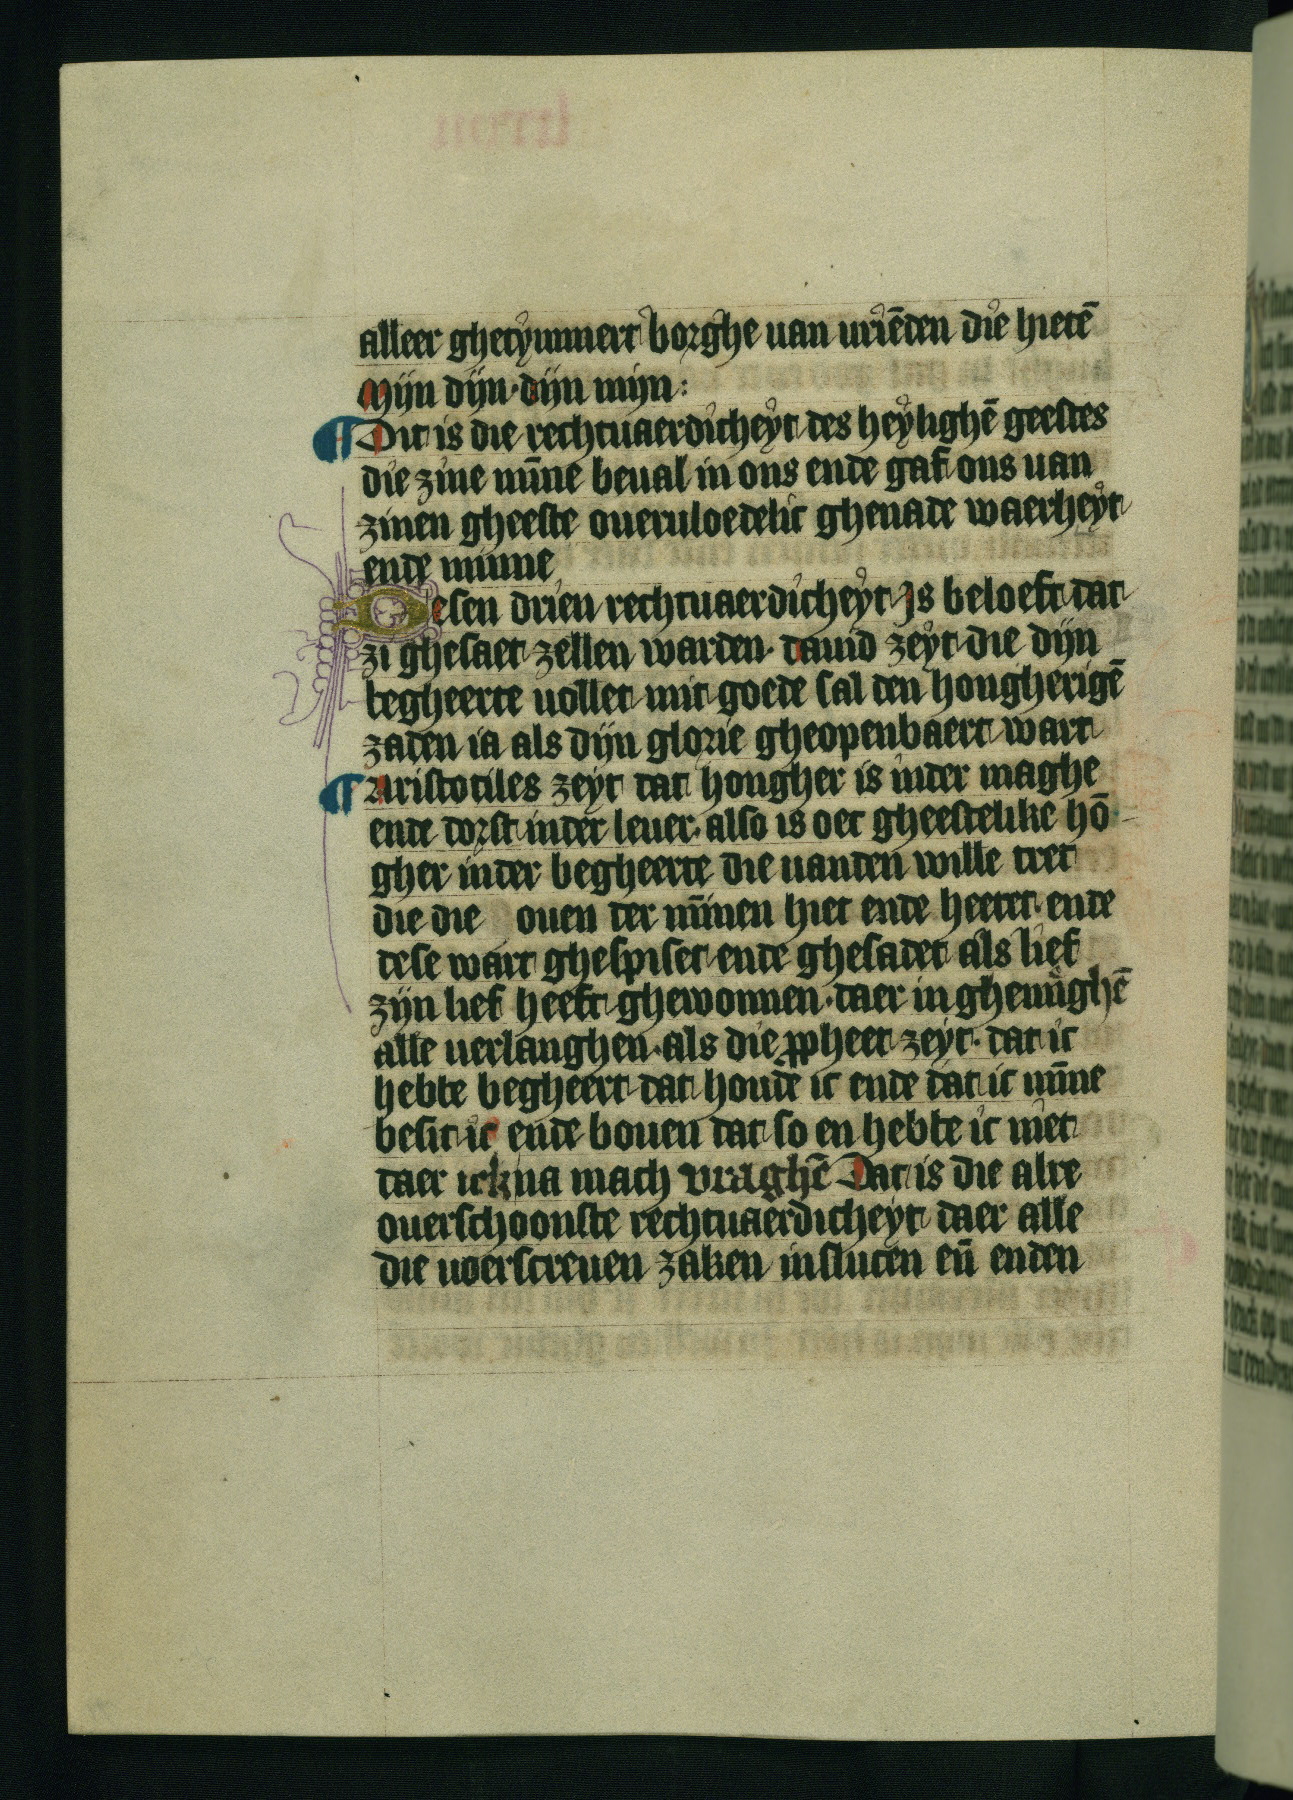 alleer ghetymmert borghe uan uriēden die hietē
Mijn dijn · dijn mijn :
¶ Dit is die rechtuaerdicheyt des heylighē geestes
die zine mīne beual in ons ende gaf ons uan
zinen gheeste oueruloedelic ghenade waerheyt
ende minne
Desen drien rechtuaerdicheyt Js beloeft dat
zi ghesaet zellen warden · dauid zeyt die dijn
begheerte uollet mit goede sal den hongherigē
zaden ia als dijn glorie gheopenbaert wart
¶ Aristotiles zeyt dat hongher is inder maghe
ende dorst inder leuer · also is oec gheestelike hō
gher inder begheerte die uanden wille tret
die die ouen der mīnen hiet ende heetet · ende
dese wart ghespiset ende ghesadet als lief
zijn lief heeft ghewonnen · daer in ghenūghē
alle uerlanghen · als die ꝓpheet zeyt · dat ic
hebbe begheert dat houde ic ende dat ic mīne
besit ic ende bouen dat so en hebbe ic niet
daer ick na mach vraghē Dat is die alre
ouerschoonste rechtuaerdicheyt daer alle
die uoerscreuen zaken insluten eñ enden